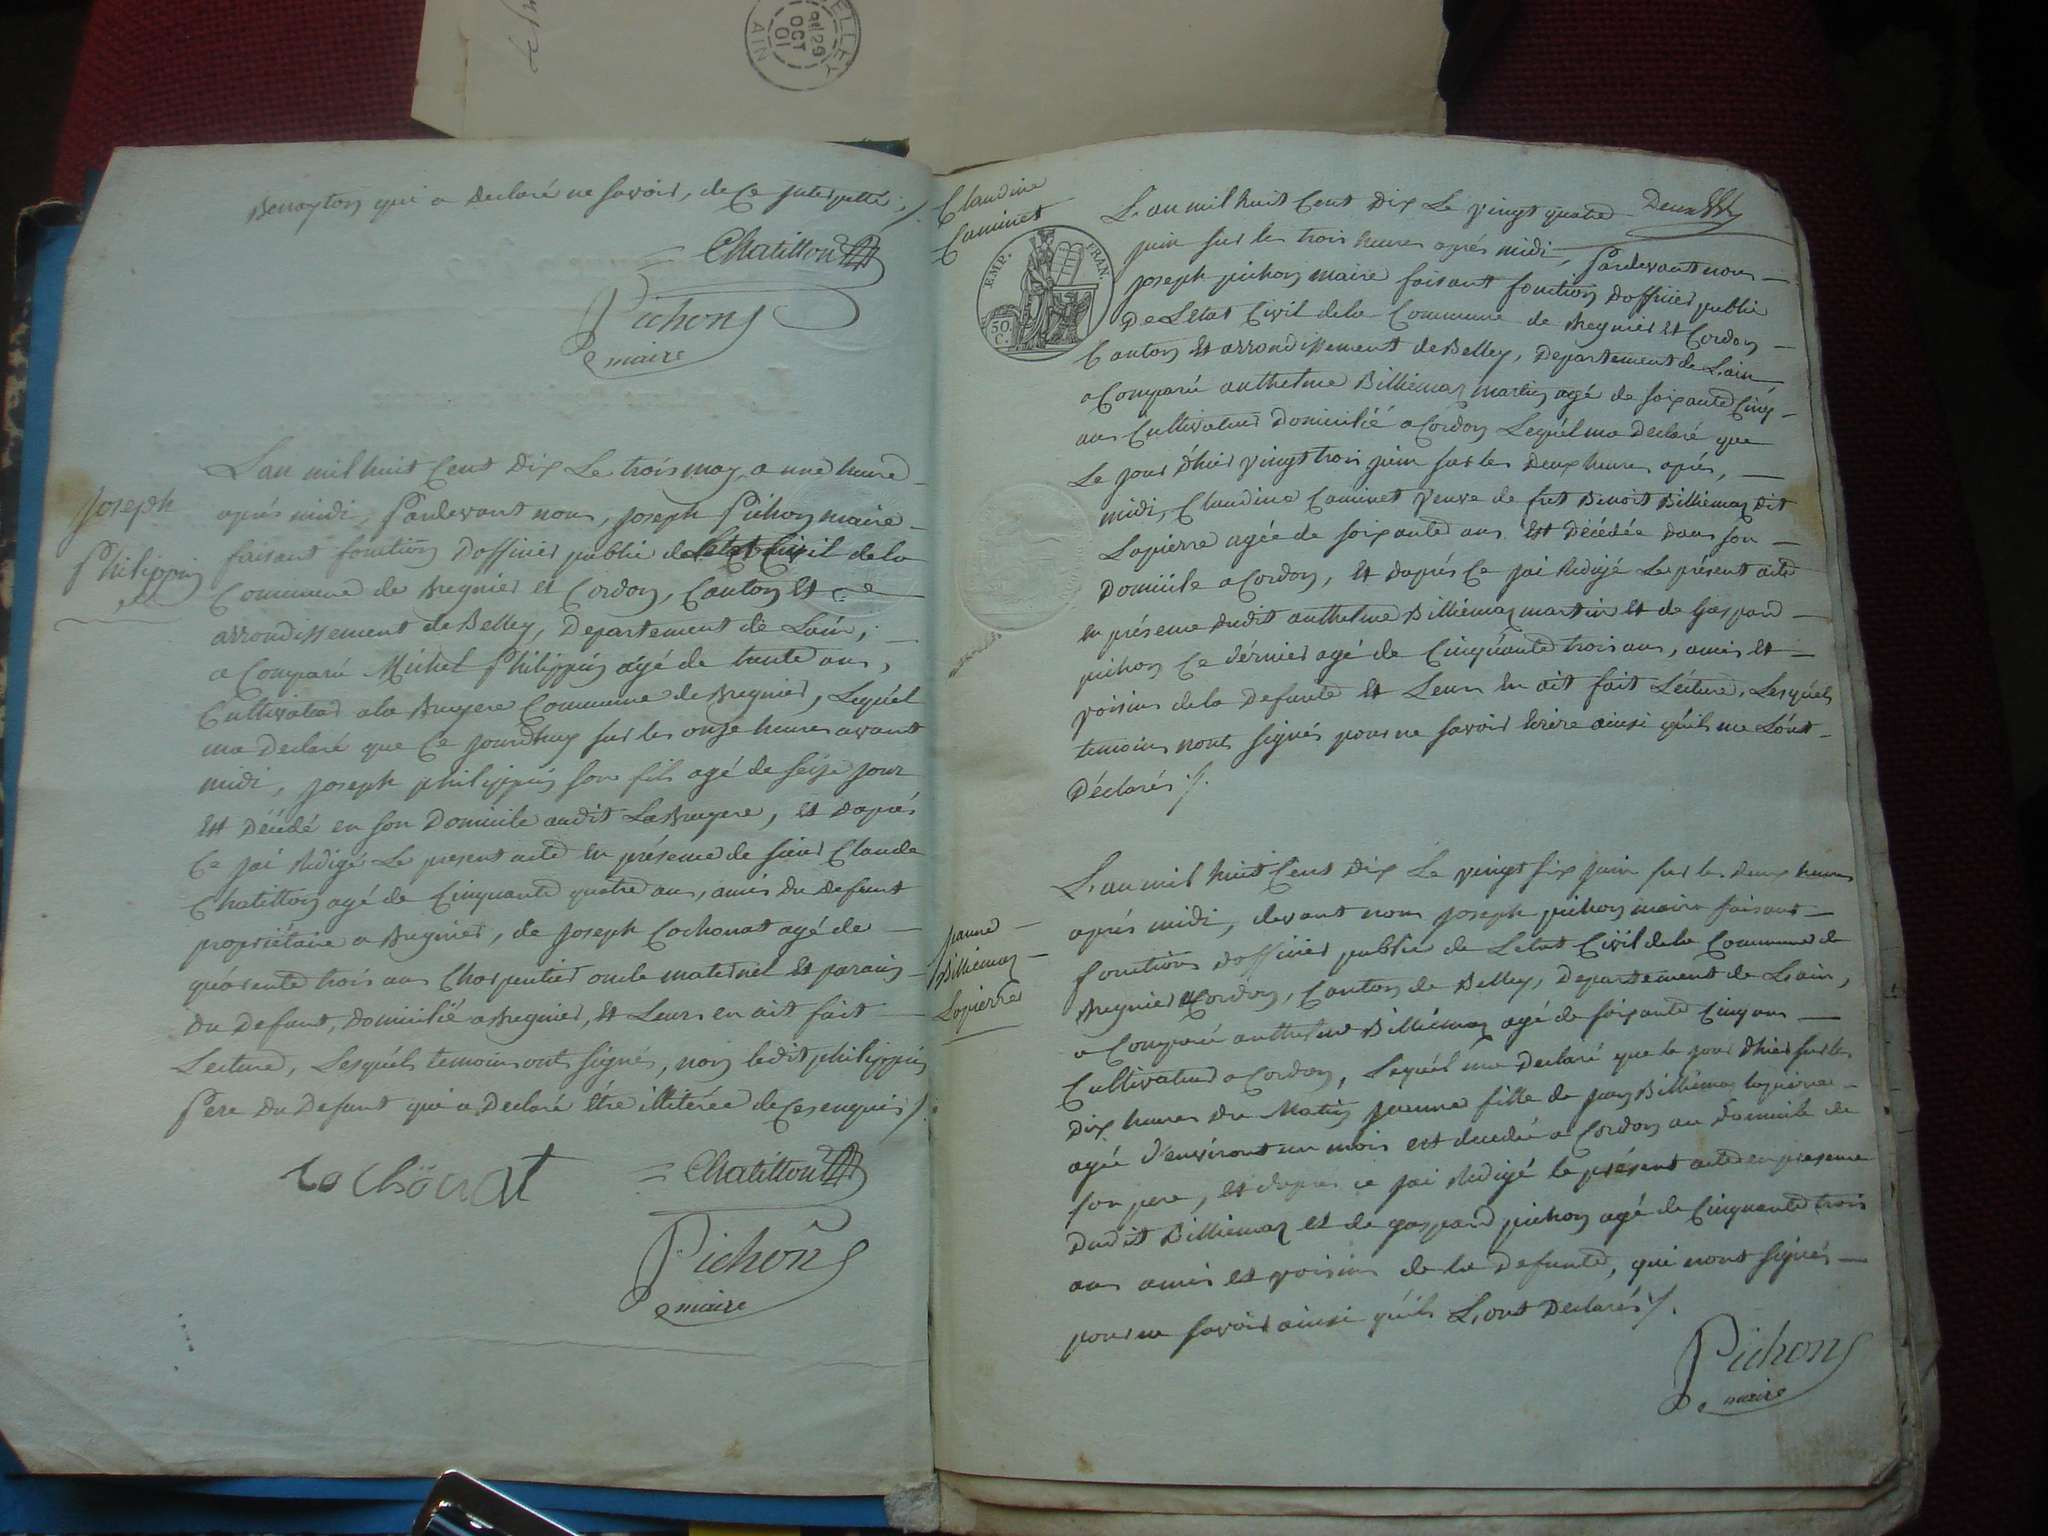 BELLEY
29
OCT
01
AIN
qui a Declaré ne Savoir, de Ce Interpellé ./.
Chatillon
Pichon
maire
Joseph
Philippin
L'an mil huit Cent Dix Le trois may a une heure
après midi, Pardevant nous, Joseph Pichon maire
faisant fonction D'officier public de L'état Civil de la
Commune de Bregnier et Cordon, Canton Et
arrondissement de Belley, Departement de Lain,
a Comparu Michel Philippin agé de trente ans,
Cultivateur a la Bruyere Commune de Bregnier, Lequél
ma Declaré que Ce Jourdhuy sur les onze heures avant
midi, Joseph philippin son fils agé de seize jour
Est Décédé en son Domicile audit La Bruyere, Et Daprés
Ce jai Redigé Le present acte En présence de sieur Claude
Chatillon agé de Cinquante quatre ans, amis du Defunt
propriétaire a Bregnier, de Joseph Cochonat agé de
quarente trois ans Charpentier oncle maternel Et parain
Du Defunt, Domicilié a Bregnier, Et Leurs en ait fait
Lecture, Lesquéls temoins ont signés, non ledit philippin
Pere Du Defunt qui a Declaré Etre illitérée de Ces enquis ./.
Cochonat
Chatillon
Pichon
maire
Claudine
Caminet
EMP. FRAN.
50.
C.
L'an mil huit Cent Dix Le vingt quatre Deux
juin sur les trois heures aprés midi, Pardevant nous
Joseph pichon maire faisant fonction D'officier public
De Létat Civil dela Commune de Bregnier Et Cordon
Canton Et arrondissement de Belley, Departement de L'ain,
a Comparu anthelme Billiemaz martin agé de soixante Cinq
ans Cultivateur Domicilié a Cordon Lequél ma Declaré que
Le jour d'hier vingt trois juin sur les Deux heures aprés,
midi, Claudine Caminet veuve de fut Benoit Billiemaz Dit
Lapierre agée de soixante ans Est Décédée Dans son
Domicile a Cordon, Et Daprés Ce jai Redigé Le présent acte
En présence dudit anthelme Billiémaz martin Et de Gaspard
pichon Ce Dérnier agé de Cinquante trois ans, amis Et
voisins dela Defunte Et Leurs En ait fait Lécture, Lesquéls
temoins nont signés pour ne savoir Ecrire ainsi quils me Lont
Déclarés ./.
Jeanne
Billiemaz
Lapierre
L'an mil huit Cent Dix Le vingt six juin sur les deux heures
aprés midi, devant nous Joseph pichon maire faisant
fonctions Dofficier public de Létat Civil dela Commune de
Bregnier Cordon, Canton de Belley, Departement de L'ain,
a Comparu anthelme Billiémaz agé de soixante Cinq ans
Cultivateur a Cordon, Lequél ma Declaré que le jour dhier sur les
Dix heures du Matin Jeanne fille de Billiémaz lapierre
agée d'environt un mois est decedée a Cordon au Domicile de
son pere, Et daprés ce jai Redigé le présent acte en presence
Dudit Billiemaz Et de gaspard pichon agé de Cinquante trois
ans amis Et voisins de la Defunte, qui nont signés
pour ne savoir ainsi qu'ils L'ont Declarés ./.
Pichon
maire